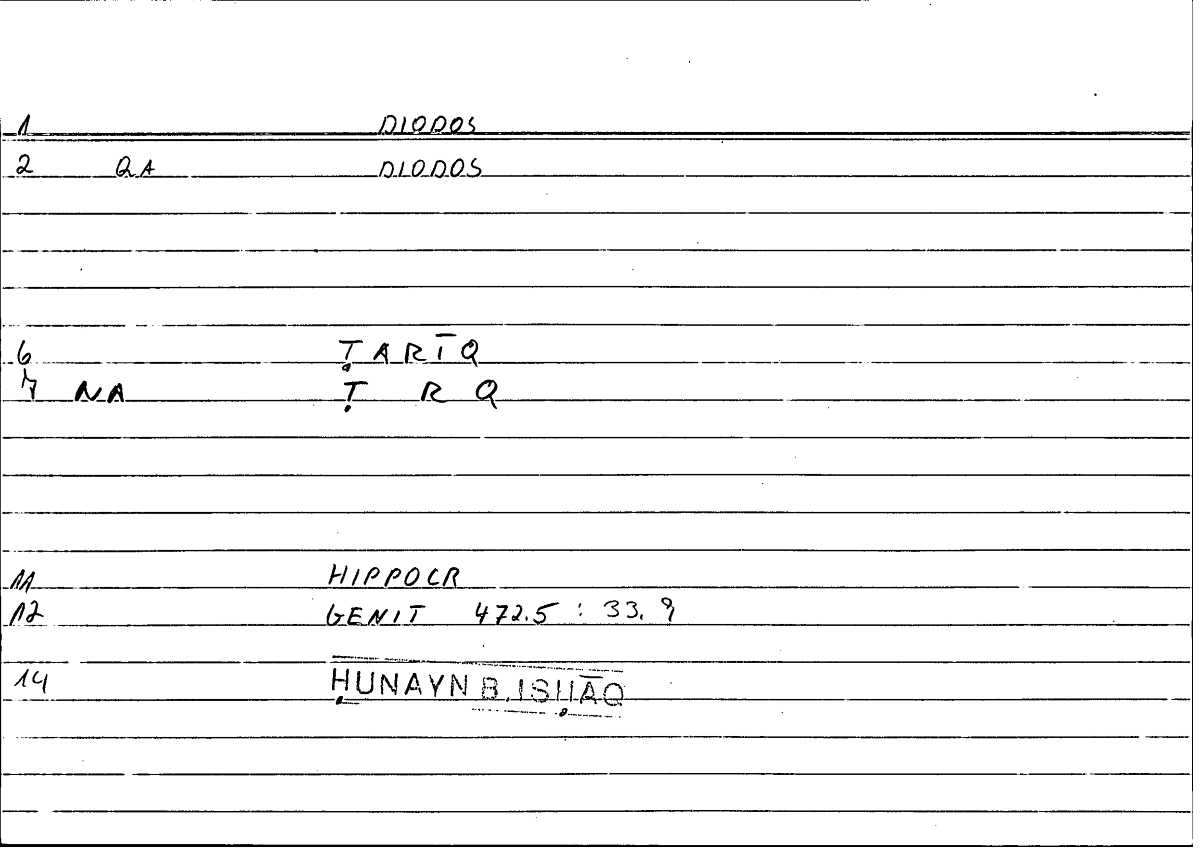 1 DIODOS
2 QA DIODOS
6 ṬARĪQ
7 NA Ṭ R Q
11 HIPPOCR
12 GENIT 472.5 : 33.9
14 ḤUNAYN B. ISḤĀQ